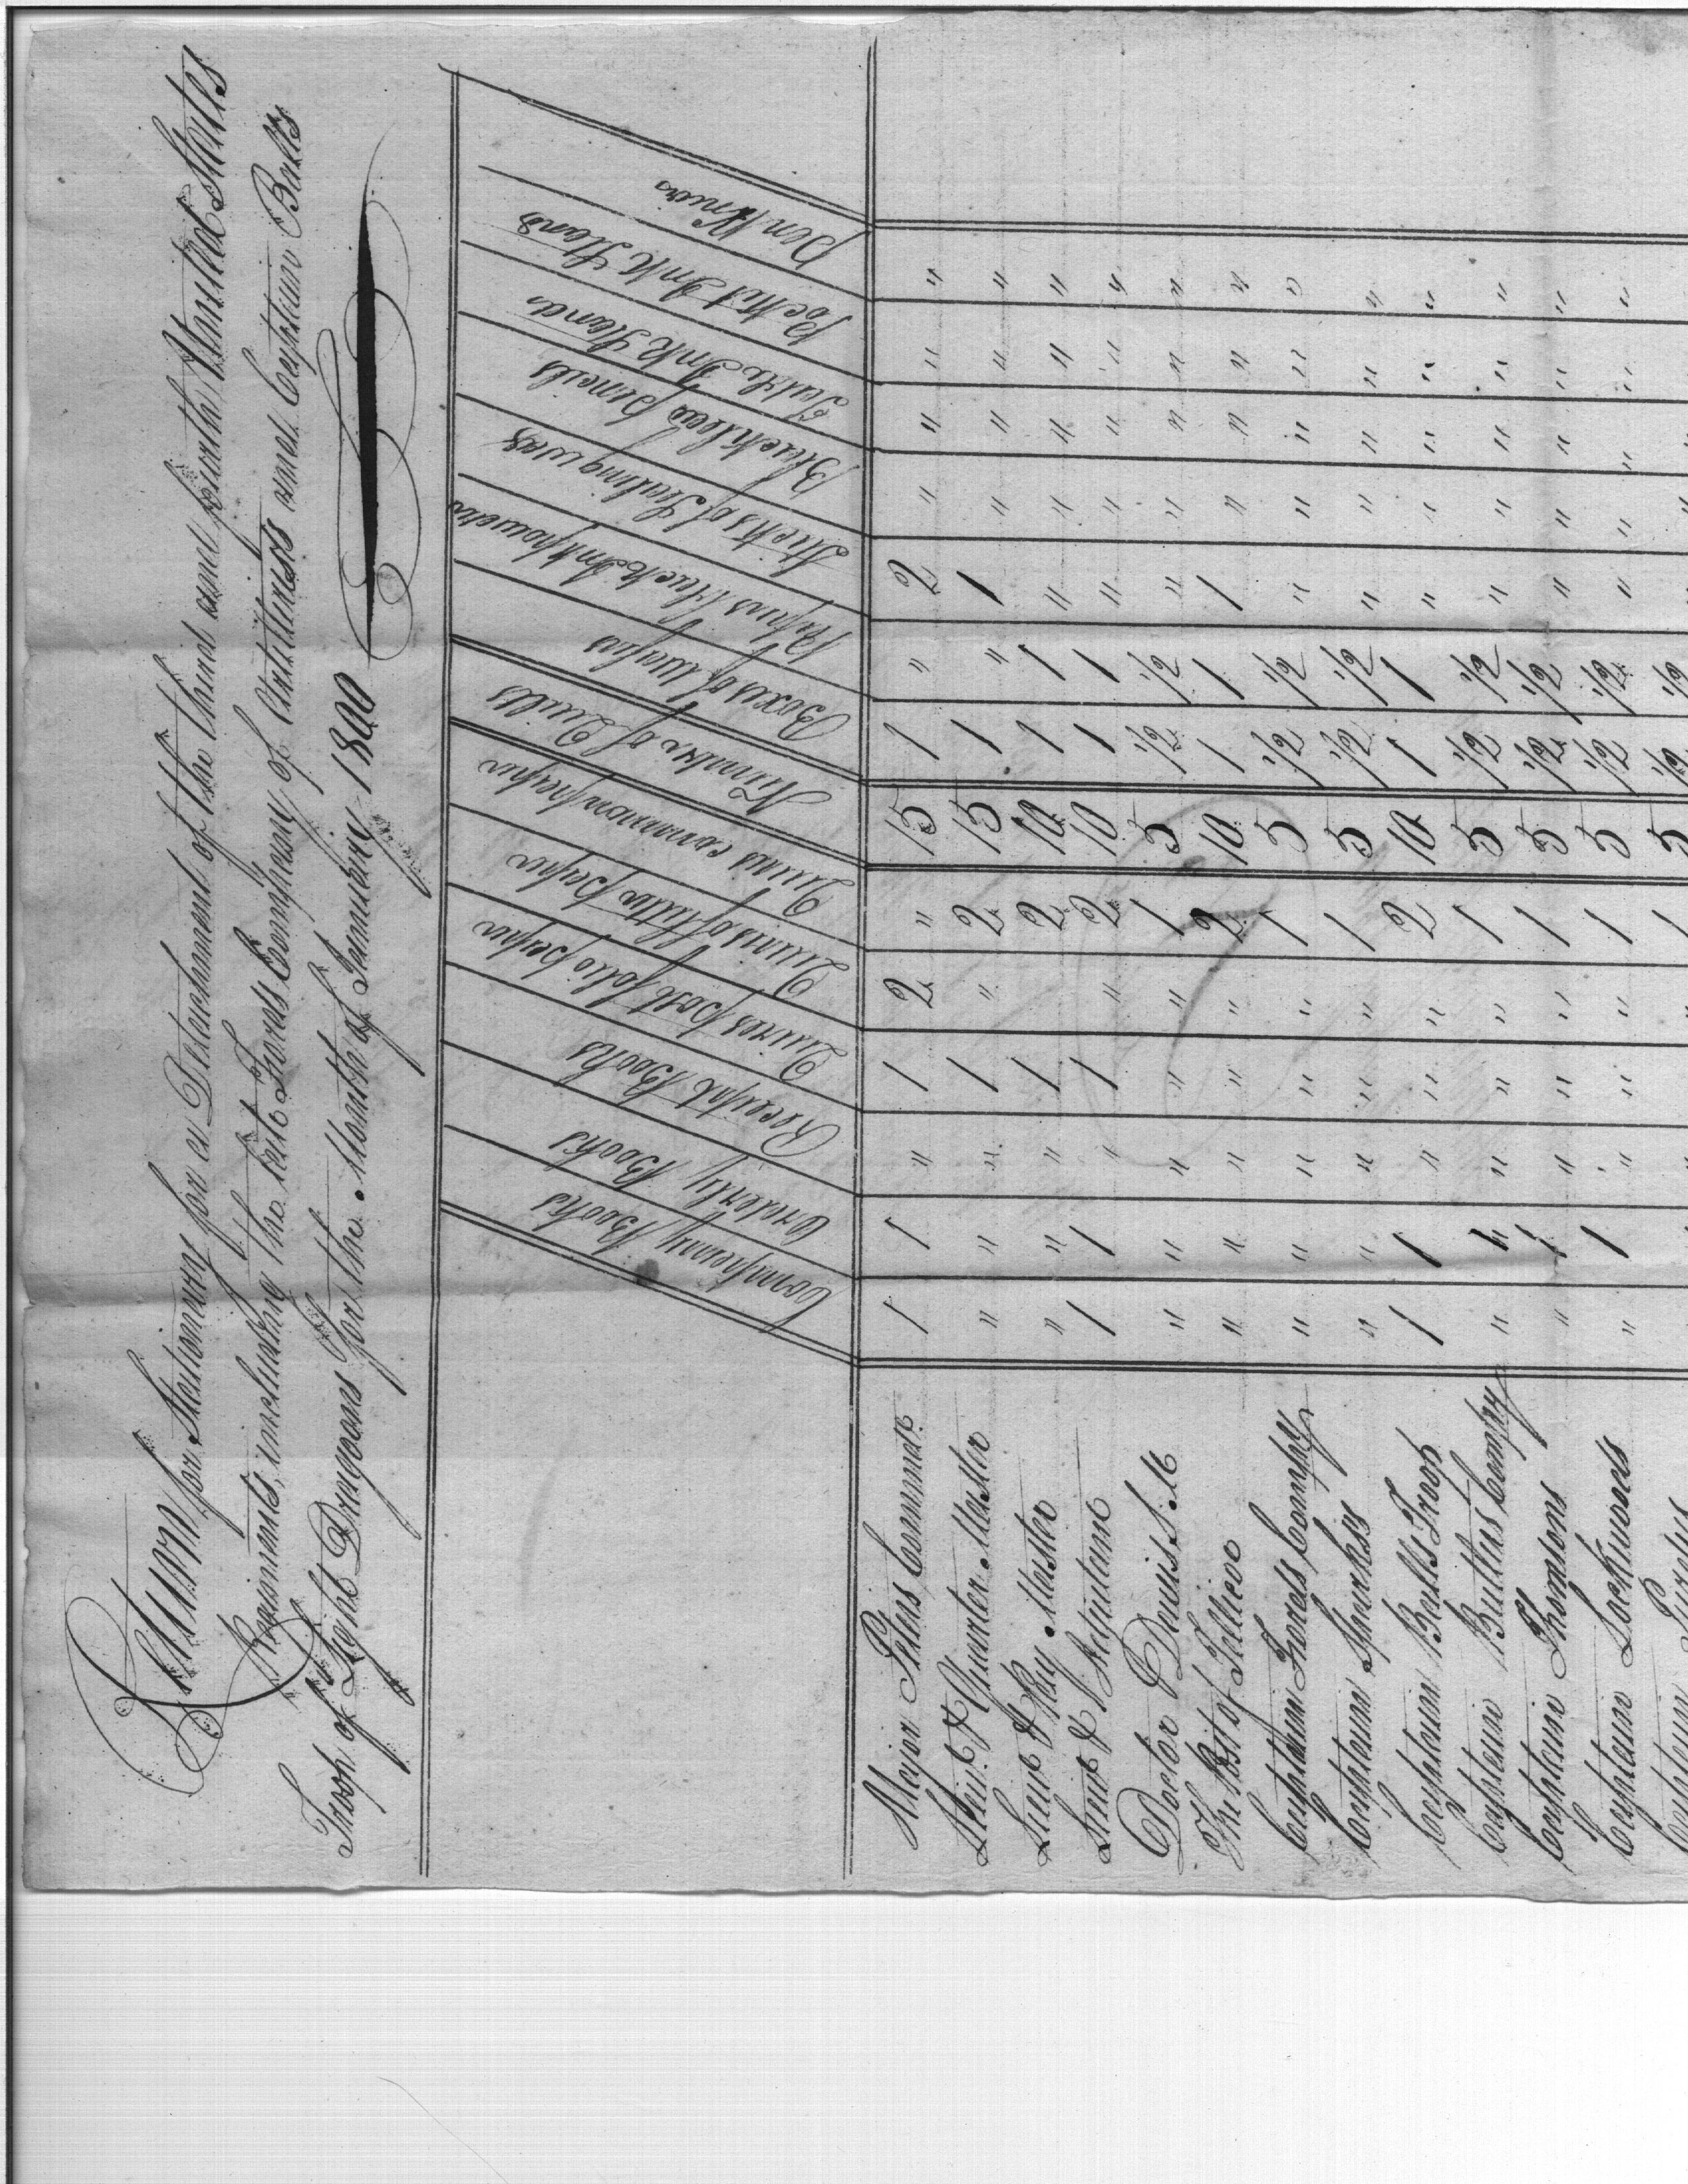 Return for Stationary for a Detachment of the third and fourth United States
Regiments, including the late Fords Company of Artillerists and Captain Balls
Troop of Light Dragoons for the Month of January 1800
Company Books
Orderly Books
Receipt Books
Quires post folio paper
Quires of letter paper
Quires common paper
Number of Quills
Boxes of wafers
Papers black Ink powder
Sticks of Sealing wax
Black lead pencils
Table Ink Stands
Pocket Ink Stand
Pen Knives
Major Peters Commandt. 1 1 " 1 2 " 15 1 " 2 " " " "
Lieut. & Quarter Master " " " 1 " 2 15 1 " 1 " " " "
Lieut & Pay Master " " " 1 2 10 1 1 " " " " "
Lieut & Adjutant 1 1 " 1 " 2 10 1 1 " " " " "
Doctor Davis S. M " " " " " 1 5 1/2 1/2 " " " " "
The Post of Tellico " " " " " 2 10 1 1 1 " " " "
Captain Fords Compy " " " " " 1 5 1/2 1/2 " " " " "
Captain Sparkes " " " " " 1 5 1/2 1/2 " " " " "
Captain Balls Troop 1 1 " " " 2 10 1 1 " " " " "
Captain Butlers Compy " " " " " 1 5 1/2 1/2 " " " " "
Captain Thomsons " 1 " " " 1 5 1/2 1/2 " " " " "
Captain Lockwoods " 1 " " " 1 5 1/2 1/2 " " " " "
Captain 1 5 1/2 1/2